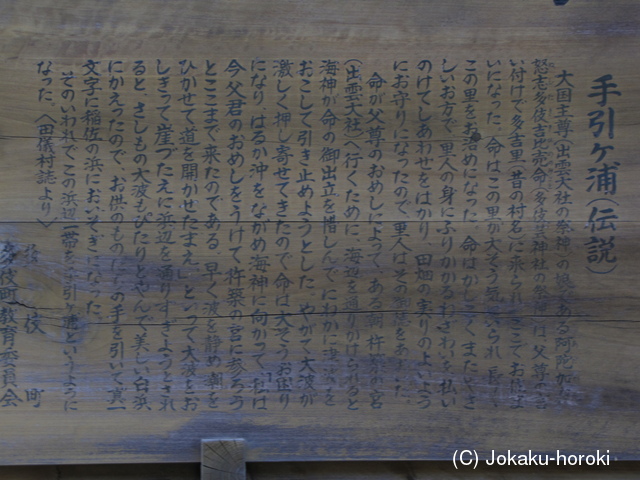 手引ヶ浦(伝説)
大国主尊(出雲大社の祭神)の
怒志多伎吉比売命(多伎芸神社の祭神)は、父尊の言
い付けで多吉里(昔の村名)に来られ、ここでお住ま
いになった。命はこの里が大そう気に入られ、長い
この里をお治めになった。命はかしこく、またやさ
しいお方で、里人の身にふりかかるわざわいを払い
のけてしあわせをはかり、田畑の実りのよいよう
にお守りになったので、里人はその御徳をあ
命が父尊のおめしによって、ある朝、杵築の宮
(出雲大社)へ行くために、海辺を通りかけられると
海神が命の御出立を惜しんで、にわかに
おこして引き止めようとした。やがて大波が
激しく押し寄せてきたので、命は大そうお困り
になり、はるか沖をながめ、海神に向かって、「私は
今父君のおめしをうけて杵築の宮に参ろう
とここまで来たのである。早く波を静め、潮を
ひかせて道を開かせたまえ。」といって大波をお
しきって崖づたえに浜辺を通りすぎようとされ
ると、さしもの大波もぴたりとやんで美しい白浜
にかえったので、お供のものたちの手を引いて真一
文字に稲佐の浜においそぎになった。
そのいわれでこの浜辺一帯を手引ヶ浦というように
なった。(田儀村誌より)
多伎町
多伎町教育委員会
(C) Jokaku-horoki